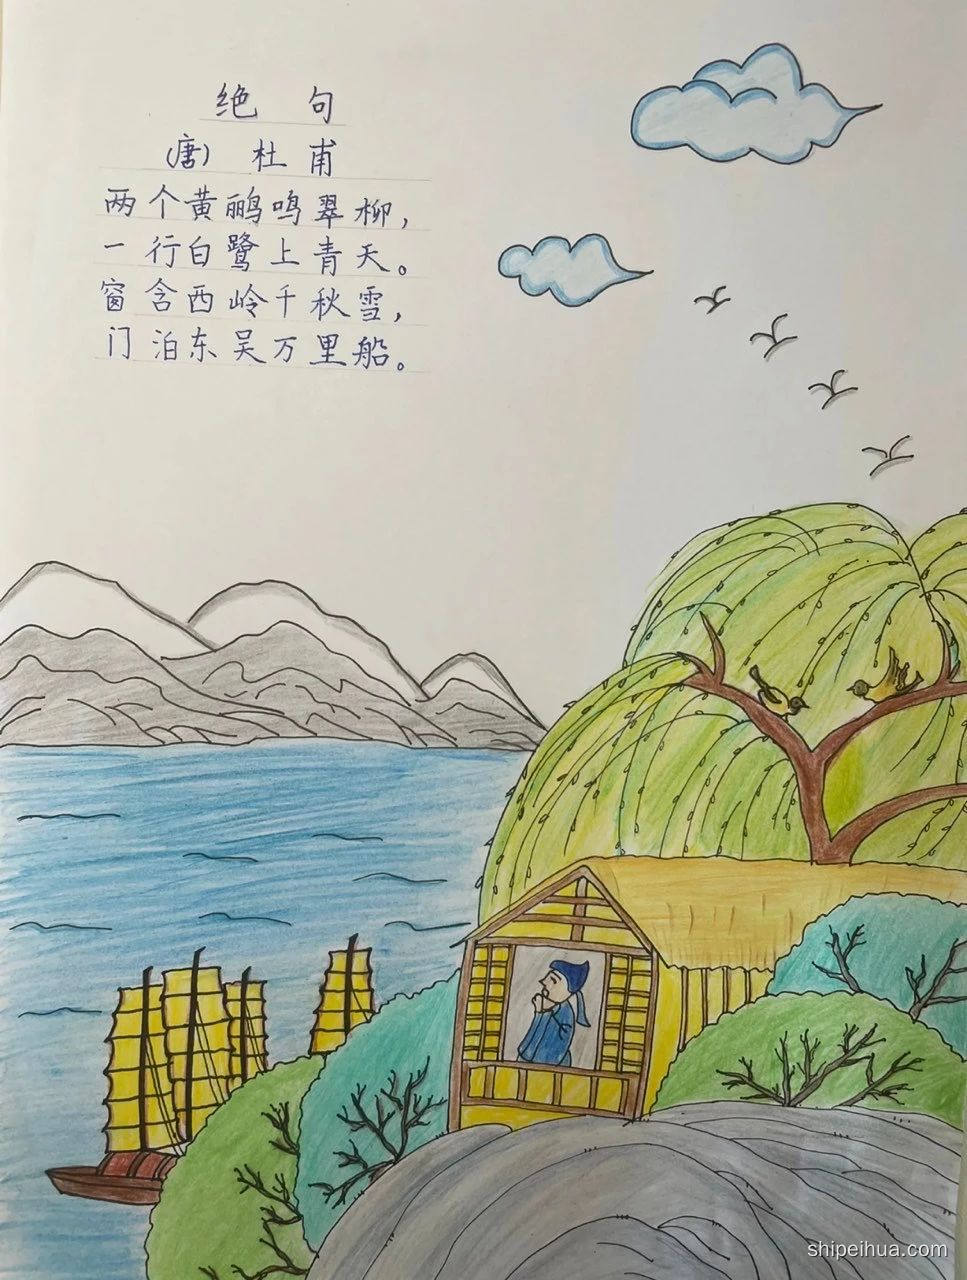 绝句
(唐) 杜甫
两个黄鹂鸣翠柳，
一行白鹭上青天。
窗含西岭千秋雪，
门泊东吴万里船。
shipeihua.com